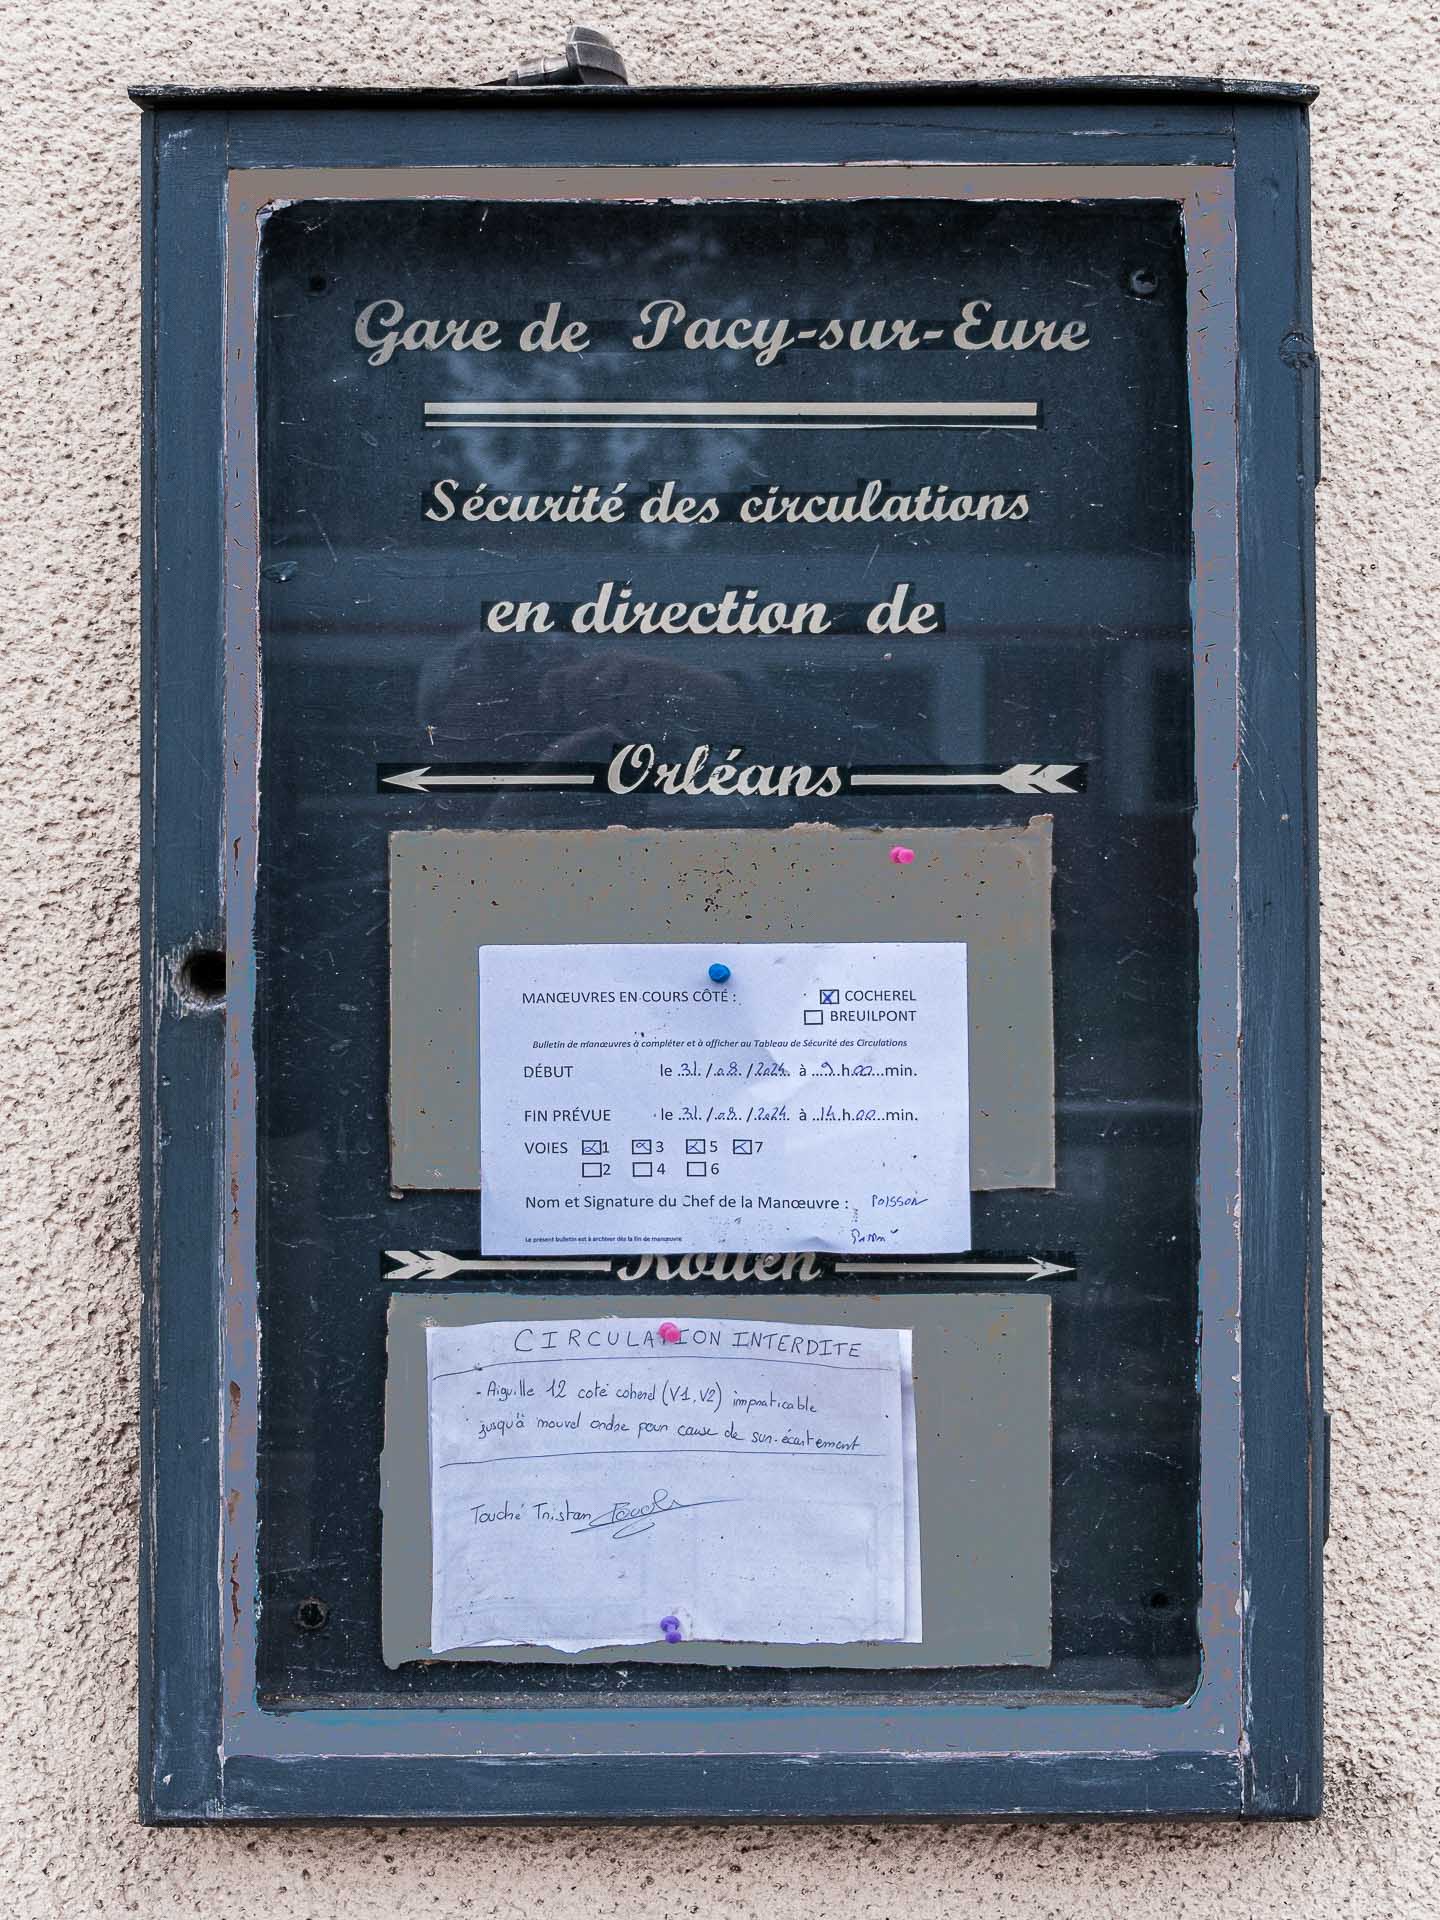 Gare de Pacy-sur-Eure
Sécurité des circulations
en direction de
Orléans
MANŒUVRES EN COURS CÔTÉ : ☒ COCHEREL
☐ BREUILPONT
Bulletin de manœuvres à compléter et à afficher au Tableau de Sécurité des Circulations
DÉBUT le 31/08/2024 à 9 h 00 min.
FIN PRÉVUE le 31/08/2024 à 14 h 00 min.
VOIES ☒1 ☒3 ☒5 ☒7
☐2 ☐4 ☐6
Nom et Signature du Chef de la Manœuvre : POISSON
Le présent bulletin est à archiver dès la fin de manœuvre
Rouen
CIRCULATION INTERDITE
- Aiguille 12 coté coherel (V1, V2) impraticable
jusqu'à nouvel ordre pour cause de sur-écartement
Touché Tristan